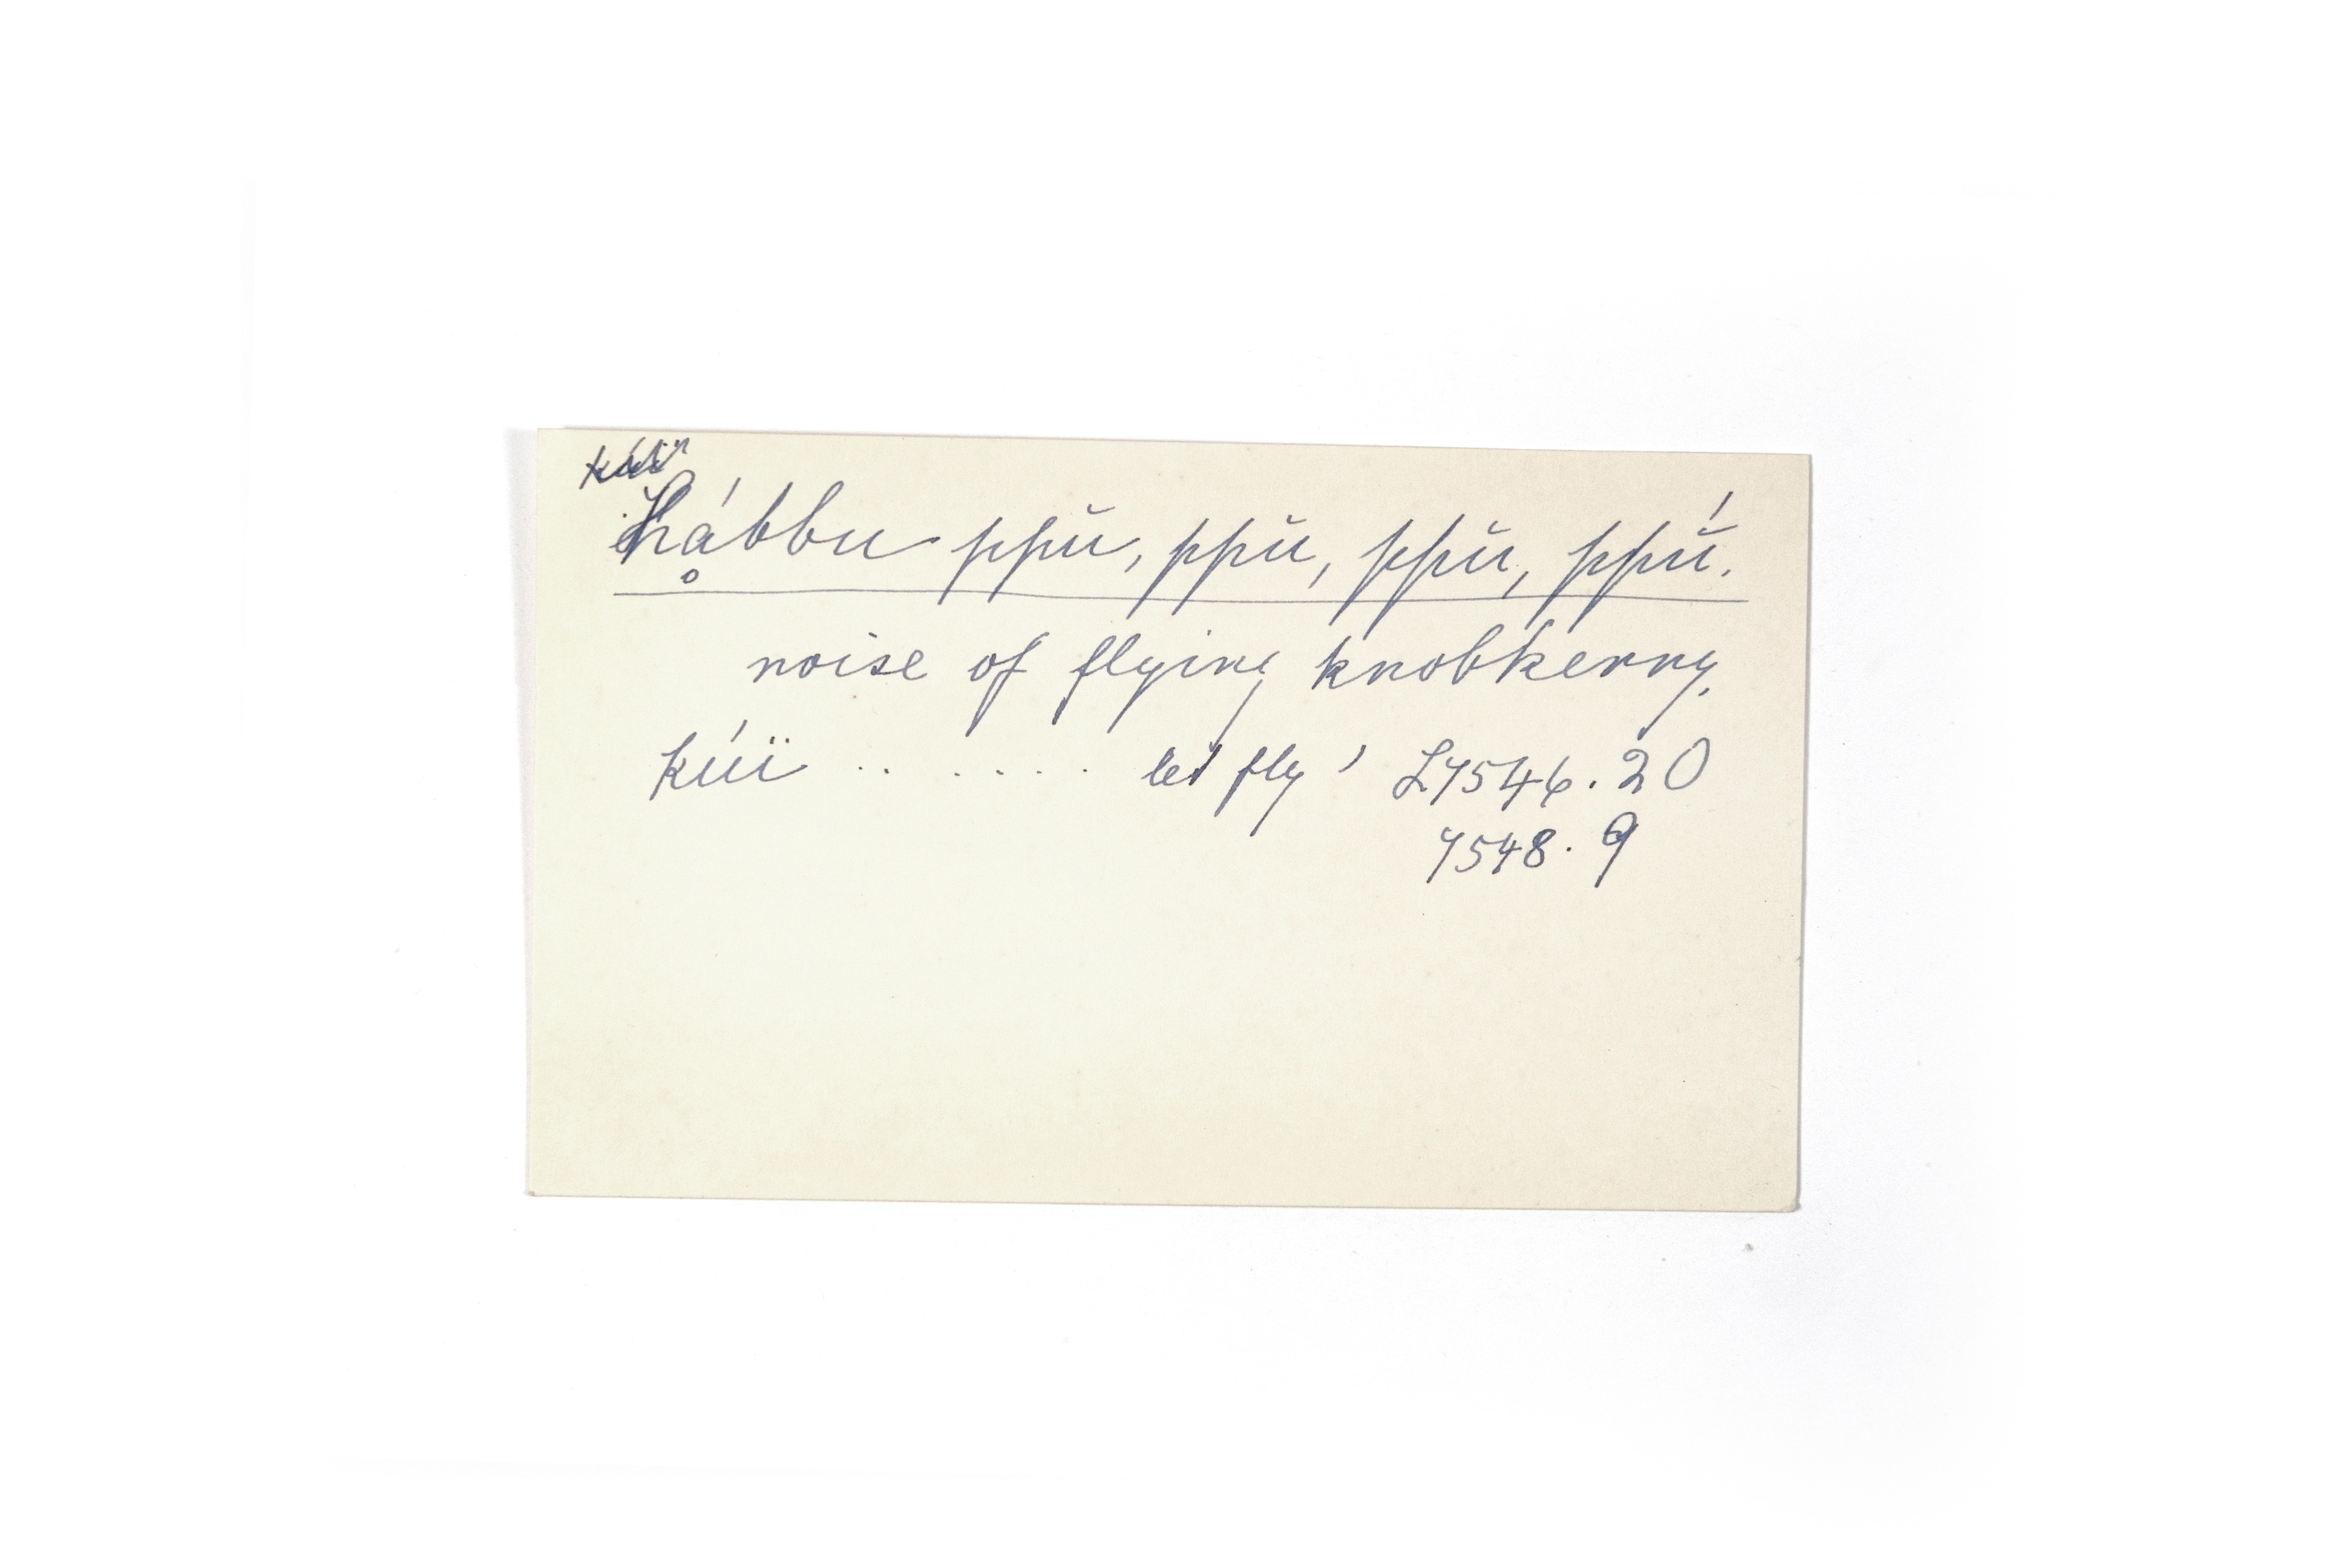 kúï
h̆ą́bbu pp̆u, pp̆u, pp̆u, pp̆ú.
noise of flying knobkerry.
kúï .. .... let fly ' L7546.20
7548.9